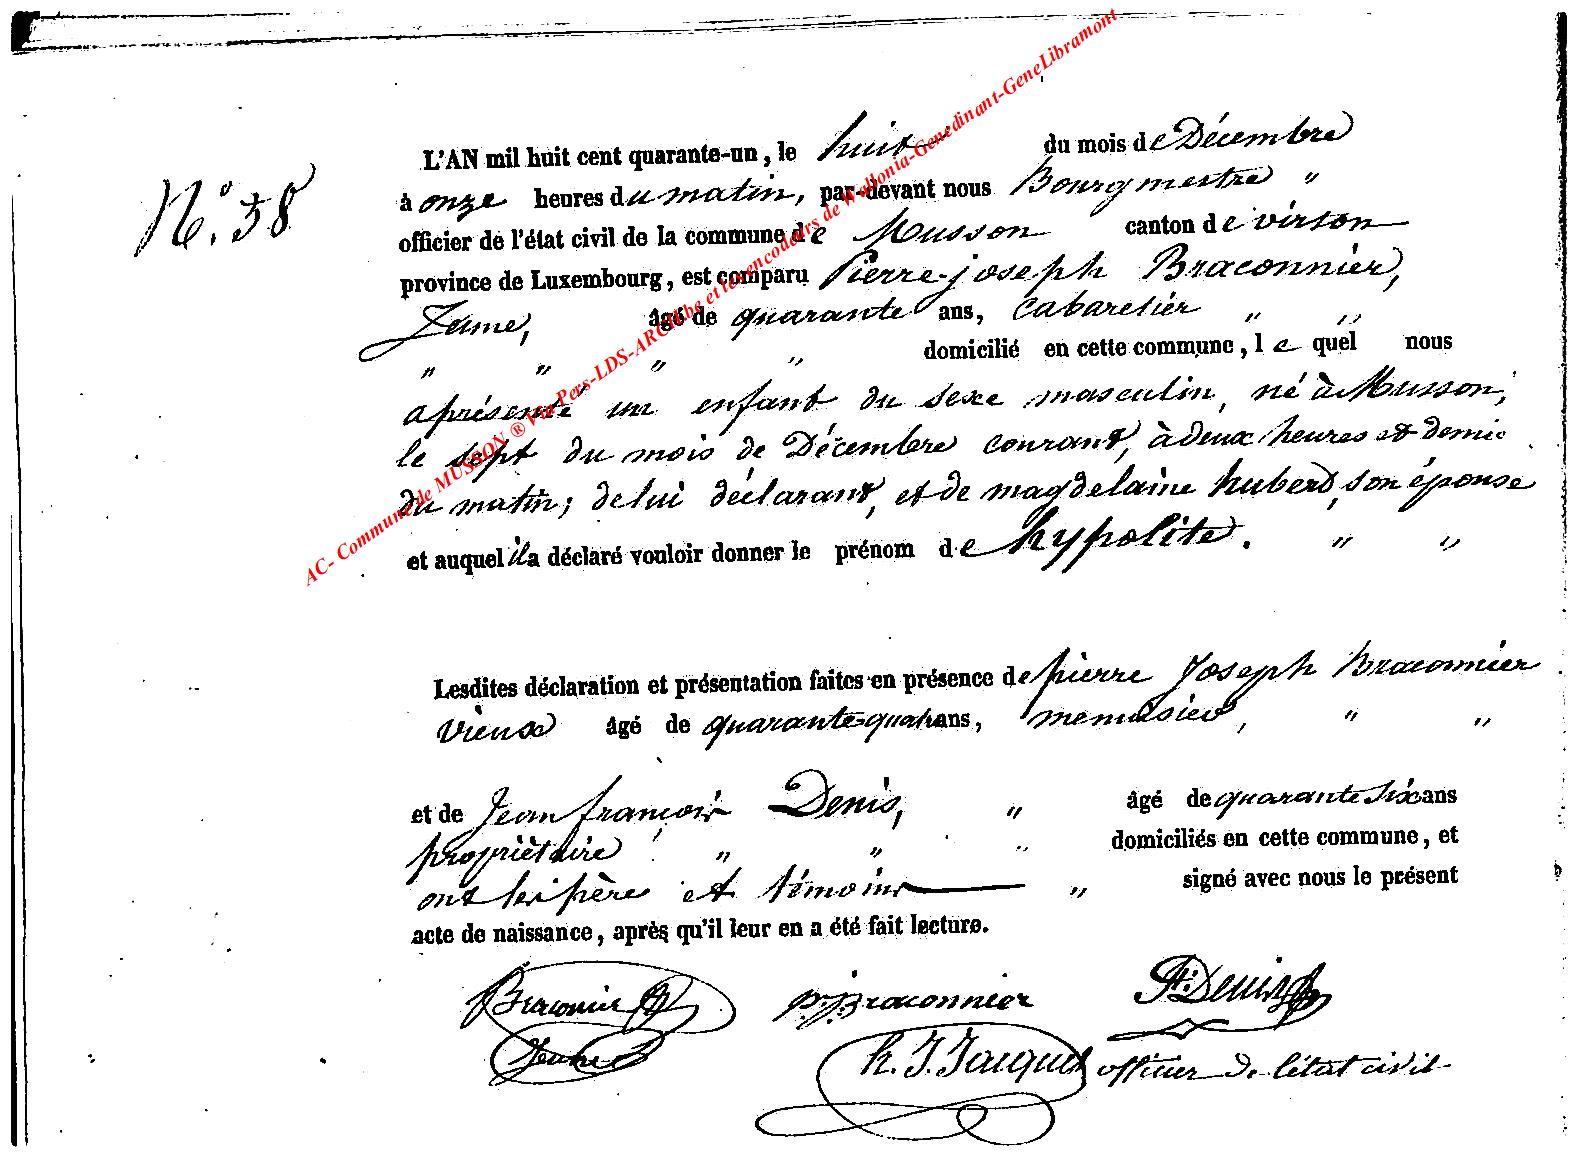 N.° 58
L'AN mil huit cent quarante-un, le huit du mois de Décembre
à onze heures du matin, par-devant nous Bourgmestre "
officier de l'état civil de la commune de Musson canton de virton
province de Luxembourg, est comparu Pierre-joseph Braconnier,
Jeune, âgé de quarante ans, Cabaretier " "
" " " " domicilié en cette commune, le quel nous
a présenté un enfant du sexe masculin, né à Musson,
le sept du mois de Décembre courant, à deux heures et demie
du matin; de lui déclarant, et de magdelaine hubert, son épouse
et auquel il a déclaré vouloir donner le prénom de hypolite. " "
Lesdites déclaration et présentation faites en présence de pierre Joseph Braconnier
vieux âgé de quarante-quatre ans, menuisier, " "
et de Jean françois Denis, " âgé de quarante six ans
propriétaire " " " domiciliés en cette commune, et
ont les père et témoins " signé avec nous le présent
acte de naissance, après qu'il leur en a été fait lecture.
Braconnier p.j. Braconnier Denis
Jeune
h. J. Jacquet officier de l'état civil
AC- Commune de MUSSON ® Via Pers-LDS-ARCH.be et les encodeurs de Wallonia-Genedinant-GeneLibramont